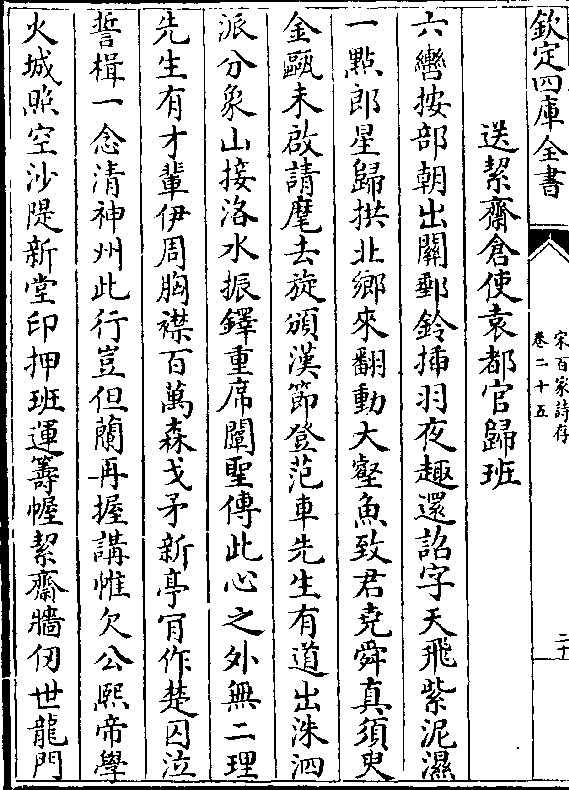 欽定四庫全書
宋百家詩存
卷二十五
二十
送絜齋倉使袁都官歸班
六轡按部朝出關郵鈴揷羽夜趣還詔字天飛紫泥濕
一點郎星歸拱北鄉來翻動大壑魚致君堯舜真須臾
金甌未啟請麾去旋頒漢節登范車先生有道出洙泗
派分象山接洛水振鐸重席闡聖傳此心之外無二理
先生有才軰伊周胸襟百萬森戈矛新亭肎作楚囚泣
誓楫一念清神州此行豈但蘭再握講帷欠公熙帝學
火城照空沙隄新堂印押班運籌幄絜齋牆仞世龍門